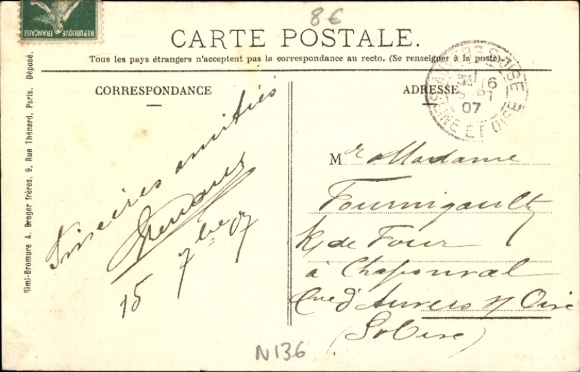 8€
RÉPUBLIQUE FRANÇAISE
CARTE POSTALE.
Tous les pays étrangers n'acceptent pas la correspondance au recto. (Se renseigner à la poste)
CORRESPONDANCE
Sincères amitiés
15 7bre 07
ADRESSE
AUVERS S. OISE
16
07
SEINE ET OISE
Mr & Madame
Fournigault
R. de Four
à Chaponval
Cne d'Auvers s/ Oise
(S. Oise)
N136
Simi-Bromure A. Breger frères, 9, Rue Thénard, Paris. Déposé.